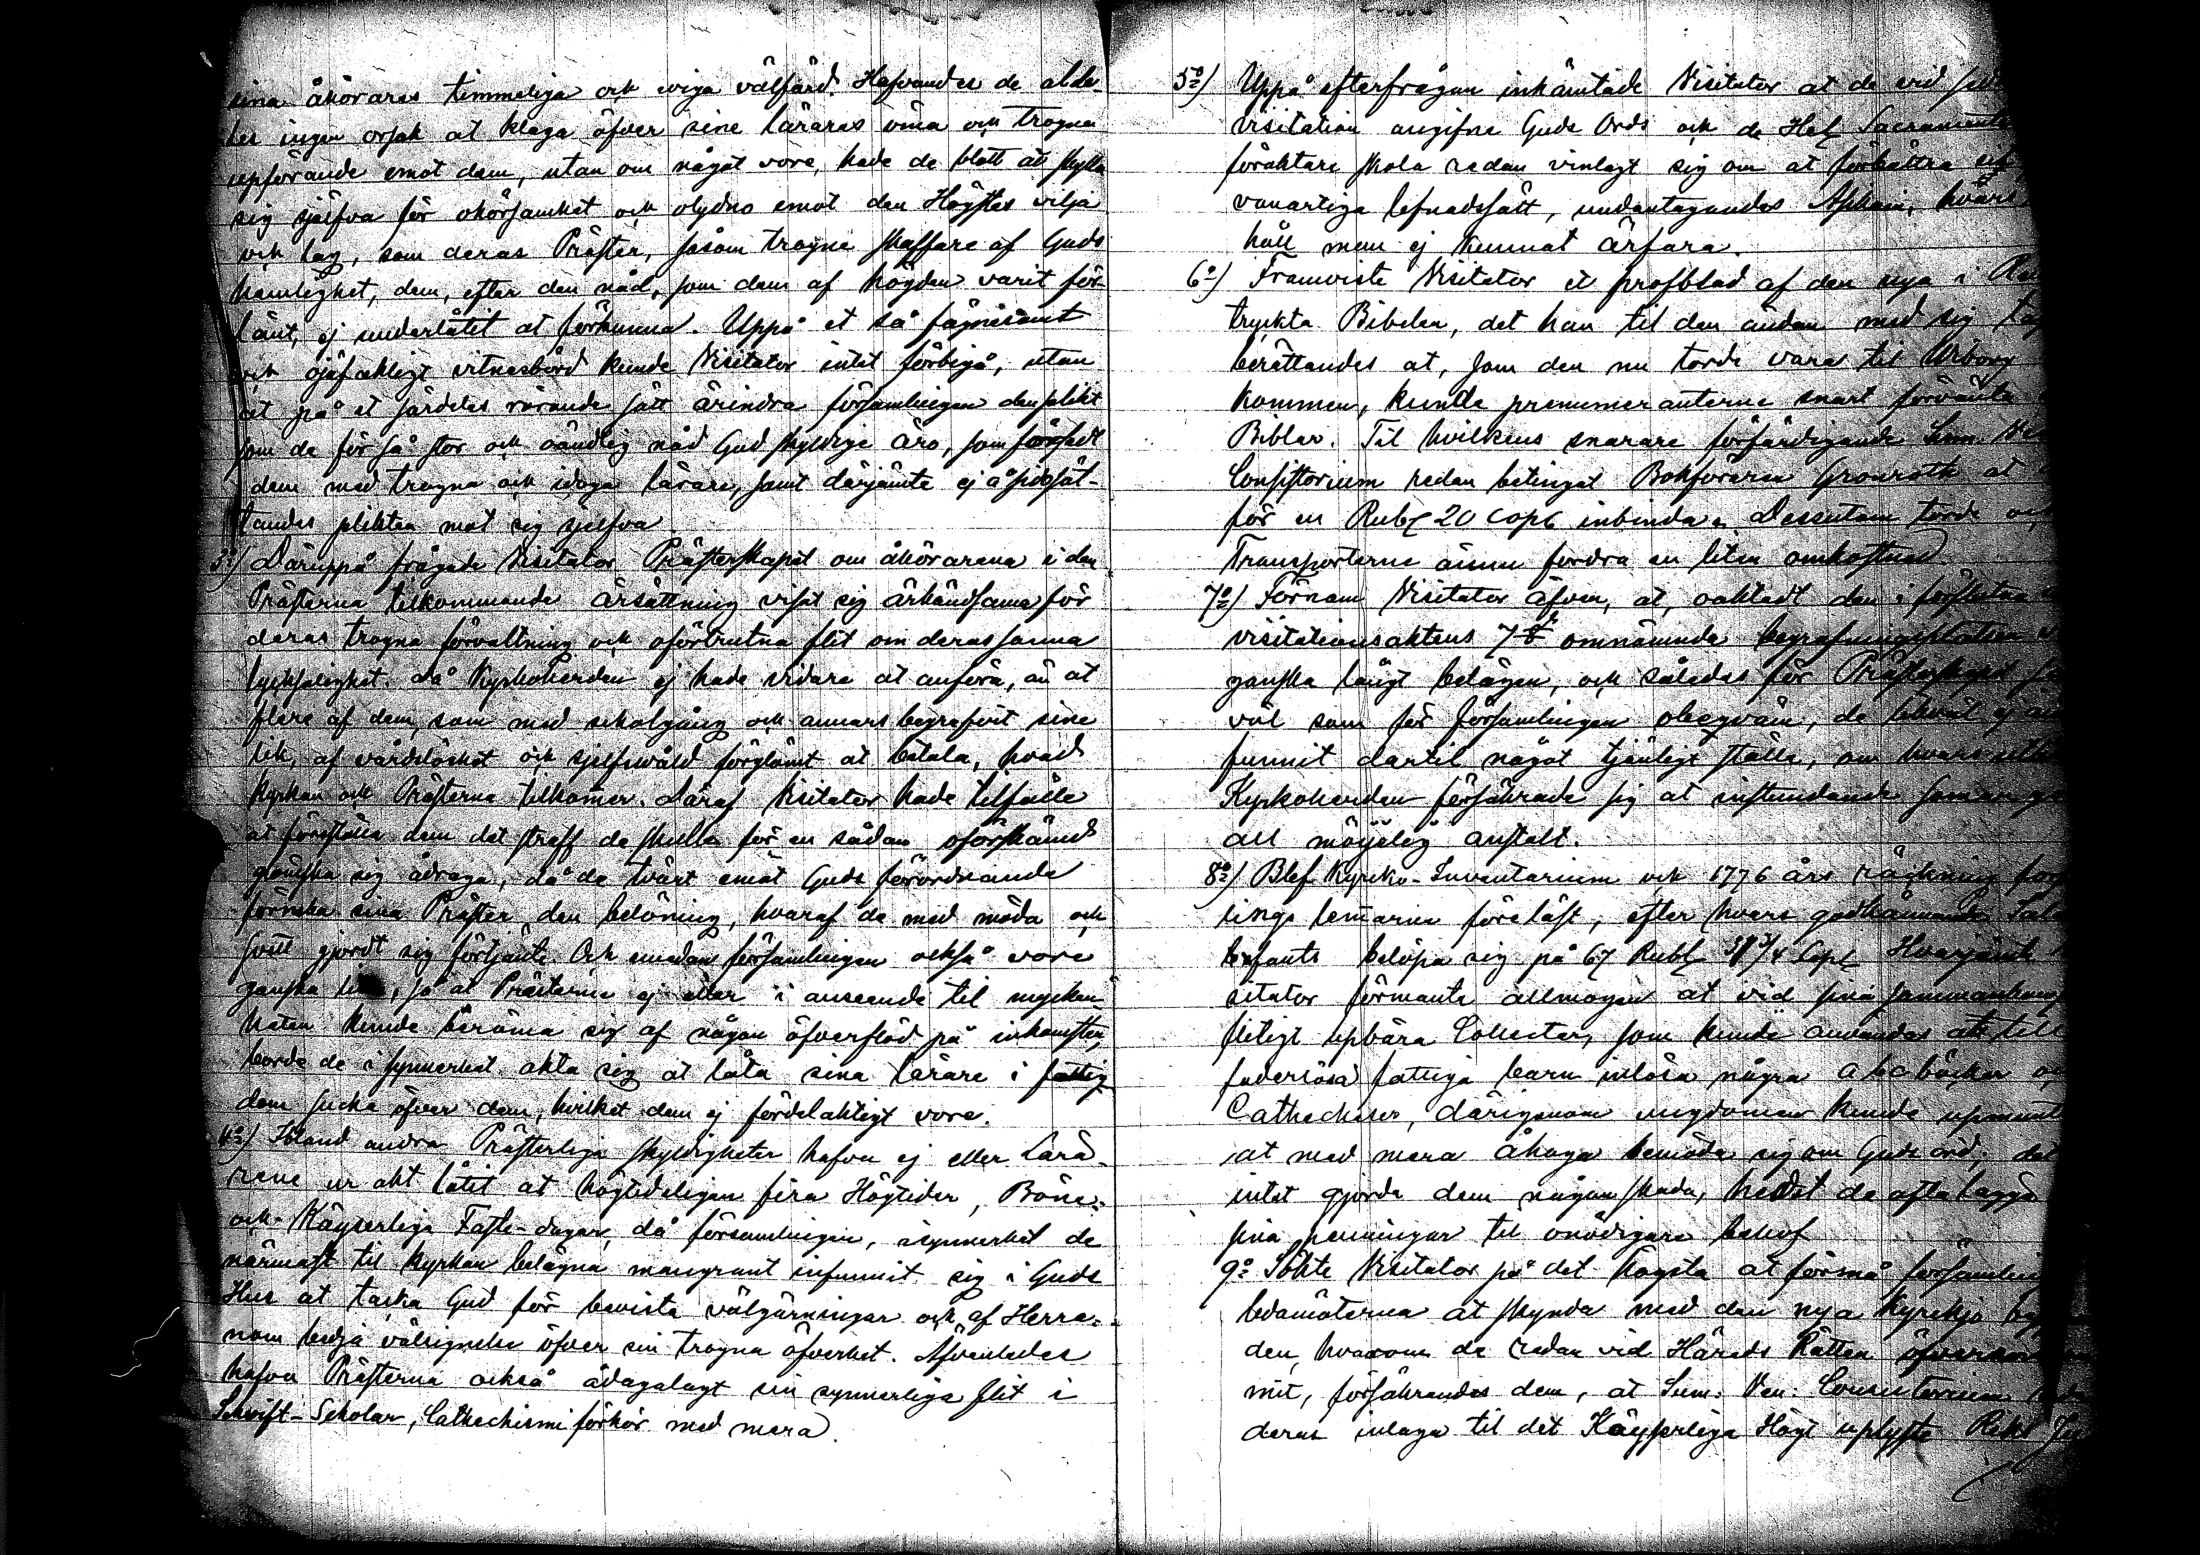 sina åhörares timmeliga och eviga välfärd. Hafvandes de alde-
les ingen orsak at klaga öfver sine lärares öma och trogna
upförande emot dem, utan om något vore, hade de blott att skylla
sig sjelfva för ohörsamhet och olydno emot den Högstes vilja
och lag, som deras Präster, såsom trogne skaffare af Guds
hemlighet, dem, efter den nåd, som dem af högden varit för-
länt, ej underlåtit at förkunna. Uppå et så
och ojäfaktigt vitnesbörd kunde Visitator intet förbigå, utan
at på et särdeles rörande sätt ärindra församlingen den plikt
som de för så stor och oändlig nåd Gud skyldige äro, som försedt
dem med trogna och idoga lärare, samt därjämte ej åsidosät-
tandes plikten mot sig sjelfva
3o) Däruppå frågade Visitator Prästerskapet om åhörarena i den
Prästerna tilkommande ärsättning visat sig ärkändsama för
deras trogna förvaltning och oförtrutna flit om deras sanna
lycksalighet. då Kyrkoherden ej hade vidare at anföra, än at
flere af dem, som med sckolgång och annars begrafvit sine
lik, af vårdslöshet och sjelfswåld förglömt at betala, hvad
Kyrkan och Prästerna tilkomer. Däraf Visitator hade tilfälle
at föreställa dem det straff de skulle för en sådan oförskämd
glömska sig ådraga, då de tvärt emot Guds förordnande
förneka sina Präster den belöning, hvaraf de med möda och
svett gjordt sig förtjänte. Och emedan församlingen också vore
ganska liten, så at Prästerne ej eller i anseende til mycken-
heten kunde berömma sig af någon öfverflöd på inkomsten,
borde de i synnerhet akta sig at låta sina lärare i fattig-
dom sucka öfver dem, hvilket dem ej fördelaktigt vore.
4o) Ibland andra Prästerliga skyldigheter hafva ej eller Lära-
rene ur akt låtit at högtideligen fira Högtider, Böne-
och Käyserliga Faste-dagar, då församlingen, isynnerhet de
närmast til kyrkan belägna mangrant infunnit sig i Guds
Hus at tacka Gud för bevista välgärningar och af Herra-
nom bedja välsignelse öfver sin trogna öfverhet. Äfvenledes
hafva Prästerna också ådagalagt sin synnerliga flit i
Schrift-Scholar, Cathechismi förhör med mera.
5o) Uppå efterfrågan inhämtade Visitator at de vid
visitation angifne Guds Ords och de Hel. Sacramente
föraktare skola redan vinlagt sig om at förbättra sit
vanartiga lefnadssätt, undantagandes hvars
håll man ej kunnat ärfara.
6o) Framviste Visitator et profblad af den nya i
tryckta Bibelen, det han til den ändan med sig
berättandes at, som den nu torde vara til Wiborg
kommen, kunde prenumeranterne snart förvänta
Biblar. Til hvilkens snarare förfärdigande Sum. Ven.
Consistorium redan betingat Bokföraren Gronroth at
för en Rubl 20 Cop inbinda. Dessutom torde
Transporterne ännu fordra en liten omkostnad.
7o) Förnam Visitator äfven, at, oaktadt den i förflutna
visitationsaktens 7 § omnämnda begrafningsplatsen
ganska långt belägen, och således för Prästerskapet så
väl som för församlingen obeqväm, de likväl ej än
funnit dertil något tjänligt ställe, om hvars
Kyrkoherden försäkrade sig at instundande somar
all möjelig anstalt.
8o) Blef Kyrcko-Inventarium och 1776 års räckning för
lemarna föreläst, efter hvars godkännande
befants belöpa sig på 67 Rubl 3/4 Cop. Hvarjämte
sitator förmante allmogen at vid sina sammankomster
flitigt upbära Collecter, som kunde användas att till
faderlösa fattiga barn inlösa några abc böcker
Catheckeser, därigenom ungdomen kunde upmunt
at med mera åhoga bemöda sig om Guds ord; det
intet gjorde dem någon skada, hälst de ofta lagga
sina penningar til onödigare behof
9o Sökte Visitator på det högsta at förmå församlings
ledamöterna at skynda med den nya Kyrckjo
den, hvarom de redan vid Härads Rätten öfverens
mit, försäkrandes dem, at Sum. Ven. Consistorium
deras inlaga til det Käyserliga Högt uplyste Riks